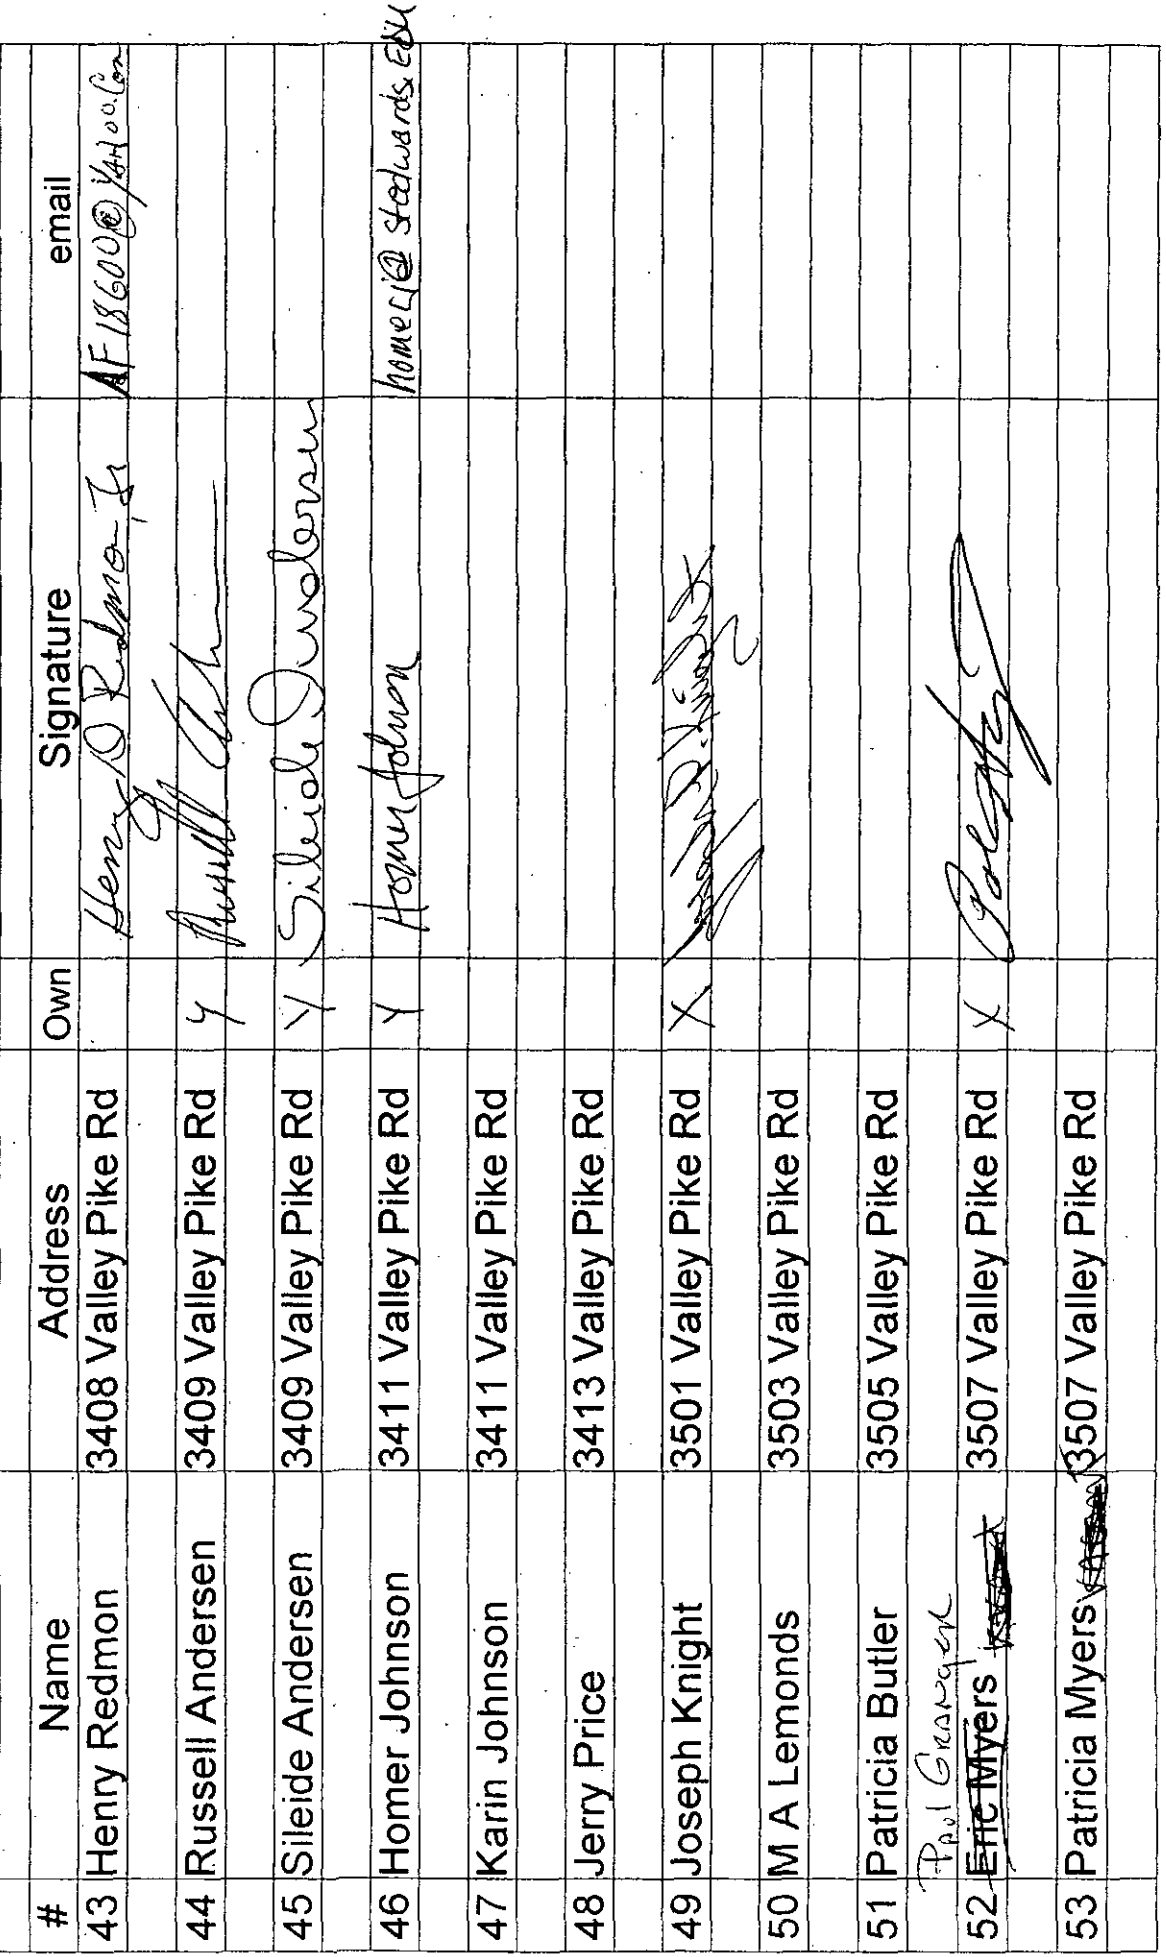 # Name Address Own Signature email
43 Henry Redmon 3408 Valley Pike Rd Henry D Redmon Jr AF18600@YAHOO.Com
44 Russell Andersen 3409 Valley Pike Rd Y
45 Sileide Andersen 3409 Valley Pike Rd Y Sileide Andersen
46 Homer Johnson 3411 Valley Pike Rd Y Homer Johnson homerj@stedwards.EDU
47 Karin Johnson 3411 Valley Pike Rd
48 Jerry Price 3413 Valley Pike Rd
49 Joseph Knight 3501 Valley Pike Rd X
50 M A Lemonds 3503 Valley Pike Rd
51 Patricia Butler 3505 Valley Pike Rd
Paul Granger
52 Eric Myers 3507 Valley Pike Rd X
53 Patricia Myers 3507 Valley Pike Rd